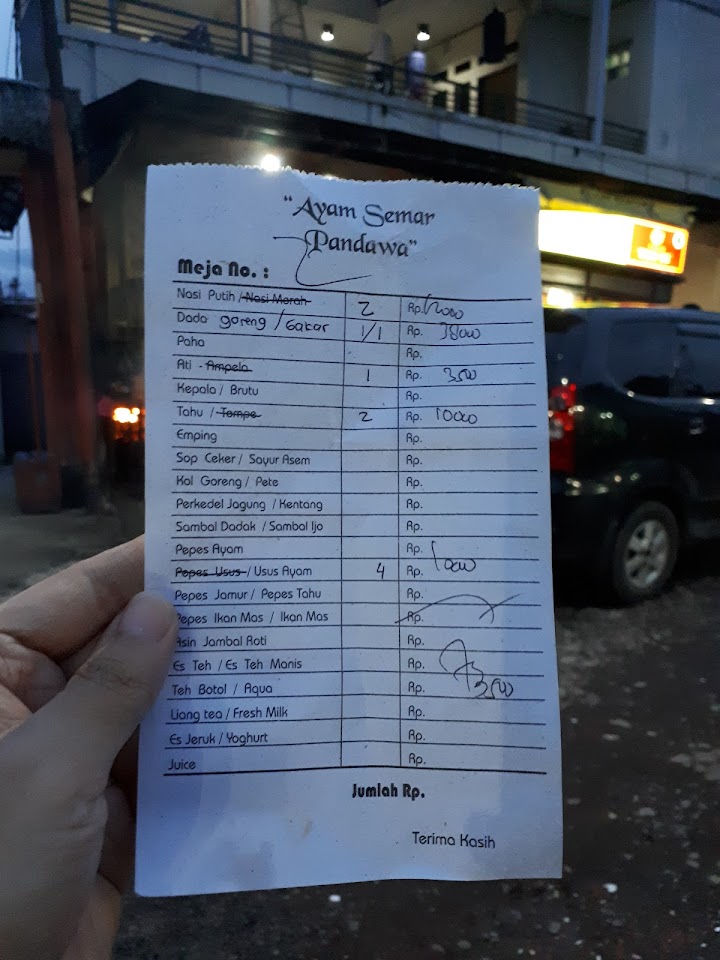 "Ayam Semar
Pandawa"
Meja No. :
Nasi Putih / Nasi Merah 2 Rp. 12000
Dada goreng / Bakar 1/1 Rp. 38000
Paha Rp.
Ati - Ampela 1 Rp. 3500
Kepala / Brutu Rp.
Tahu / Tempe 2 Rp. 10000
Emping Rp.
Sop Ceker / Sayur Asem Rp.
Kol Goreng / Pete Rp.
Perkedel Jagung / Kentang Rp.
Sambal Dadak / Sambal Ijo Rp.
Pepes Ayam Rp.
Pepes Usus / Usus Ayam 4 Rp. 10000
Pepes Jamur / Pepes Tahu Rp.
Pepes Ikan Mas / Ikan Mas Rp.
Asin Jambal Roti Rp.
Es Teh / Es Teh Manis Rp.
Teh Botol / Aqua Rp. 73500
Liang tea / Fresh Milk Rp.
Es Jeruk / Yoghurt Rp.
Juice Rp.
Jumlah Rp.
Terima Kasih